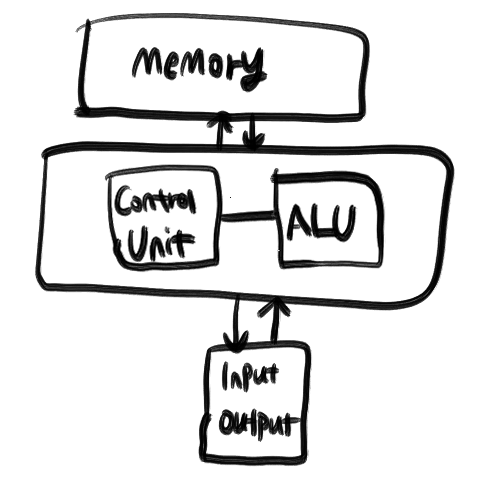 Memory
Control
Unit
ALU
Input
Output